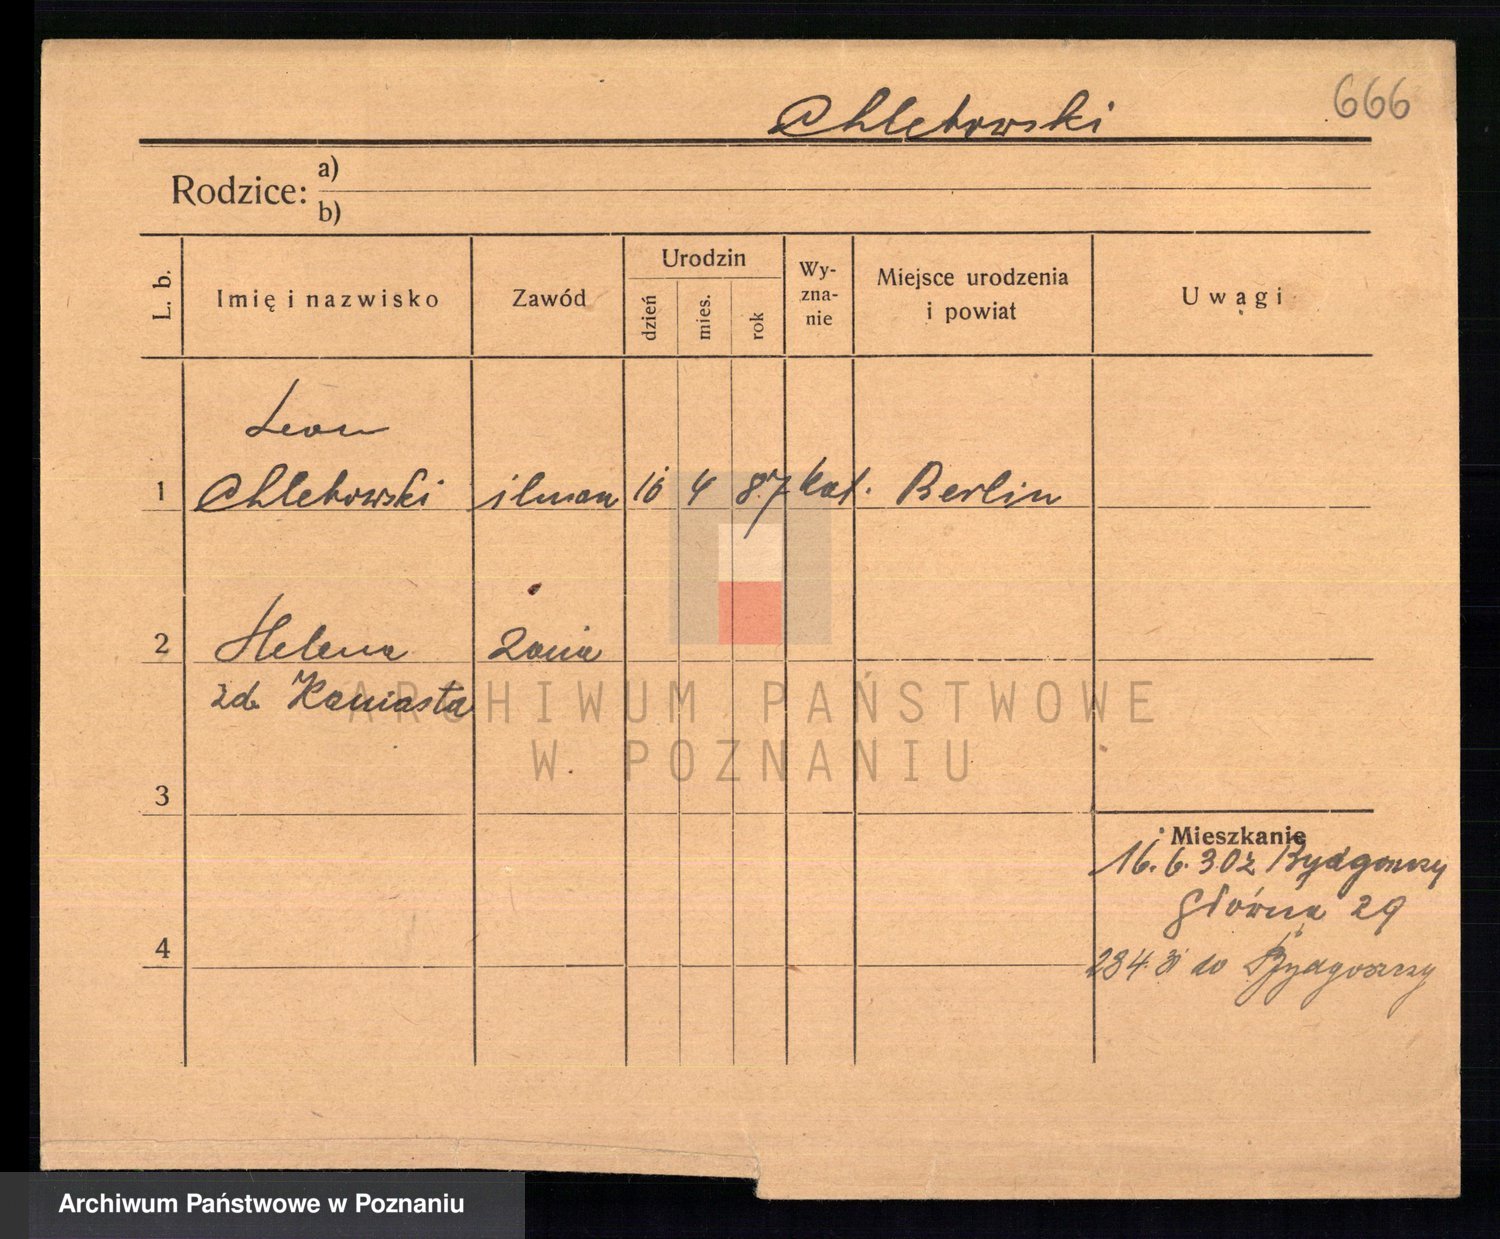 666
Chlebowski
Rodzice:
a)
b)
L. b.
Imię i nazwisko
Zawód
Urodzin
dzień
mies.
rok
Wy-
zna-
nie
Miejsce urodzenia
i powiat
Uwagi
Leon
1 Chlebowski 4 87 kat. Berlin
2 Helena żona
zd. Kaniasta
ARCHIWUM PAŃSTWOWE
W POZNANIU
3
Mieszkanie
16.6.30 z Bydgoszczy
Główna 29
4
do Bydgoszczy
Archiwum Państwowe w Poznaniu